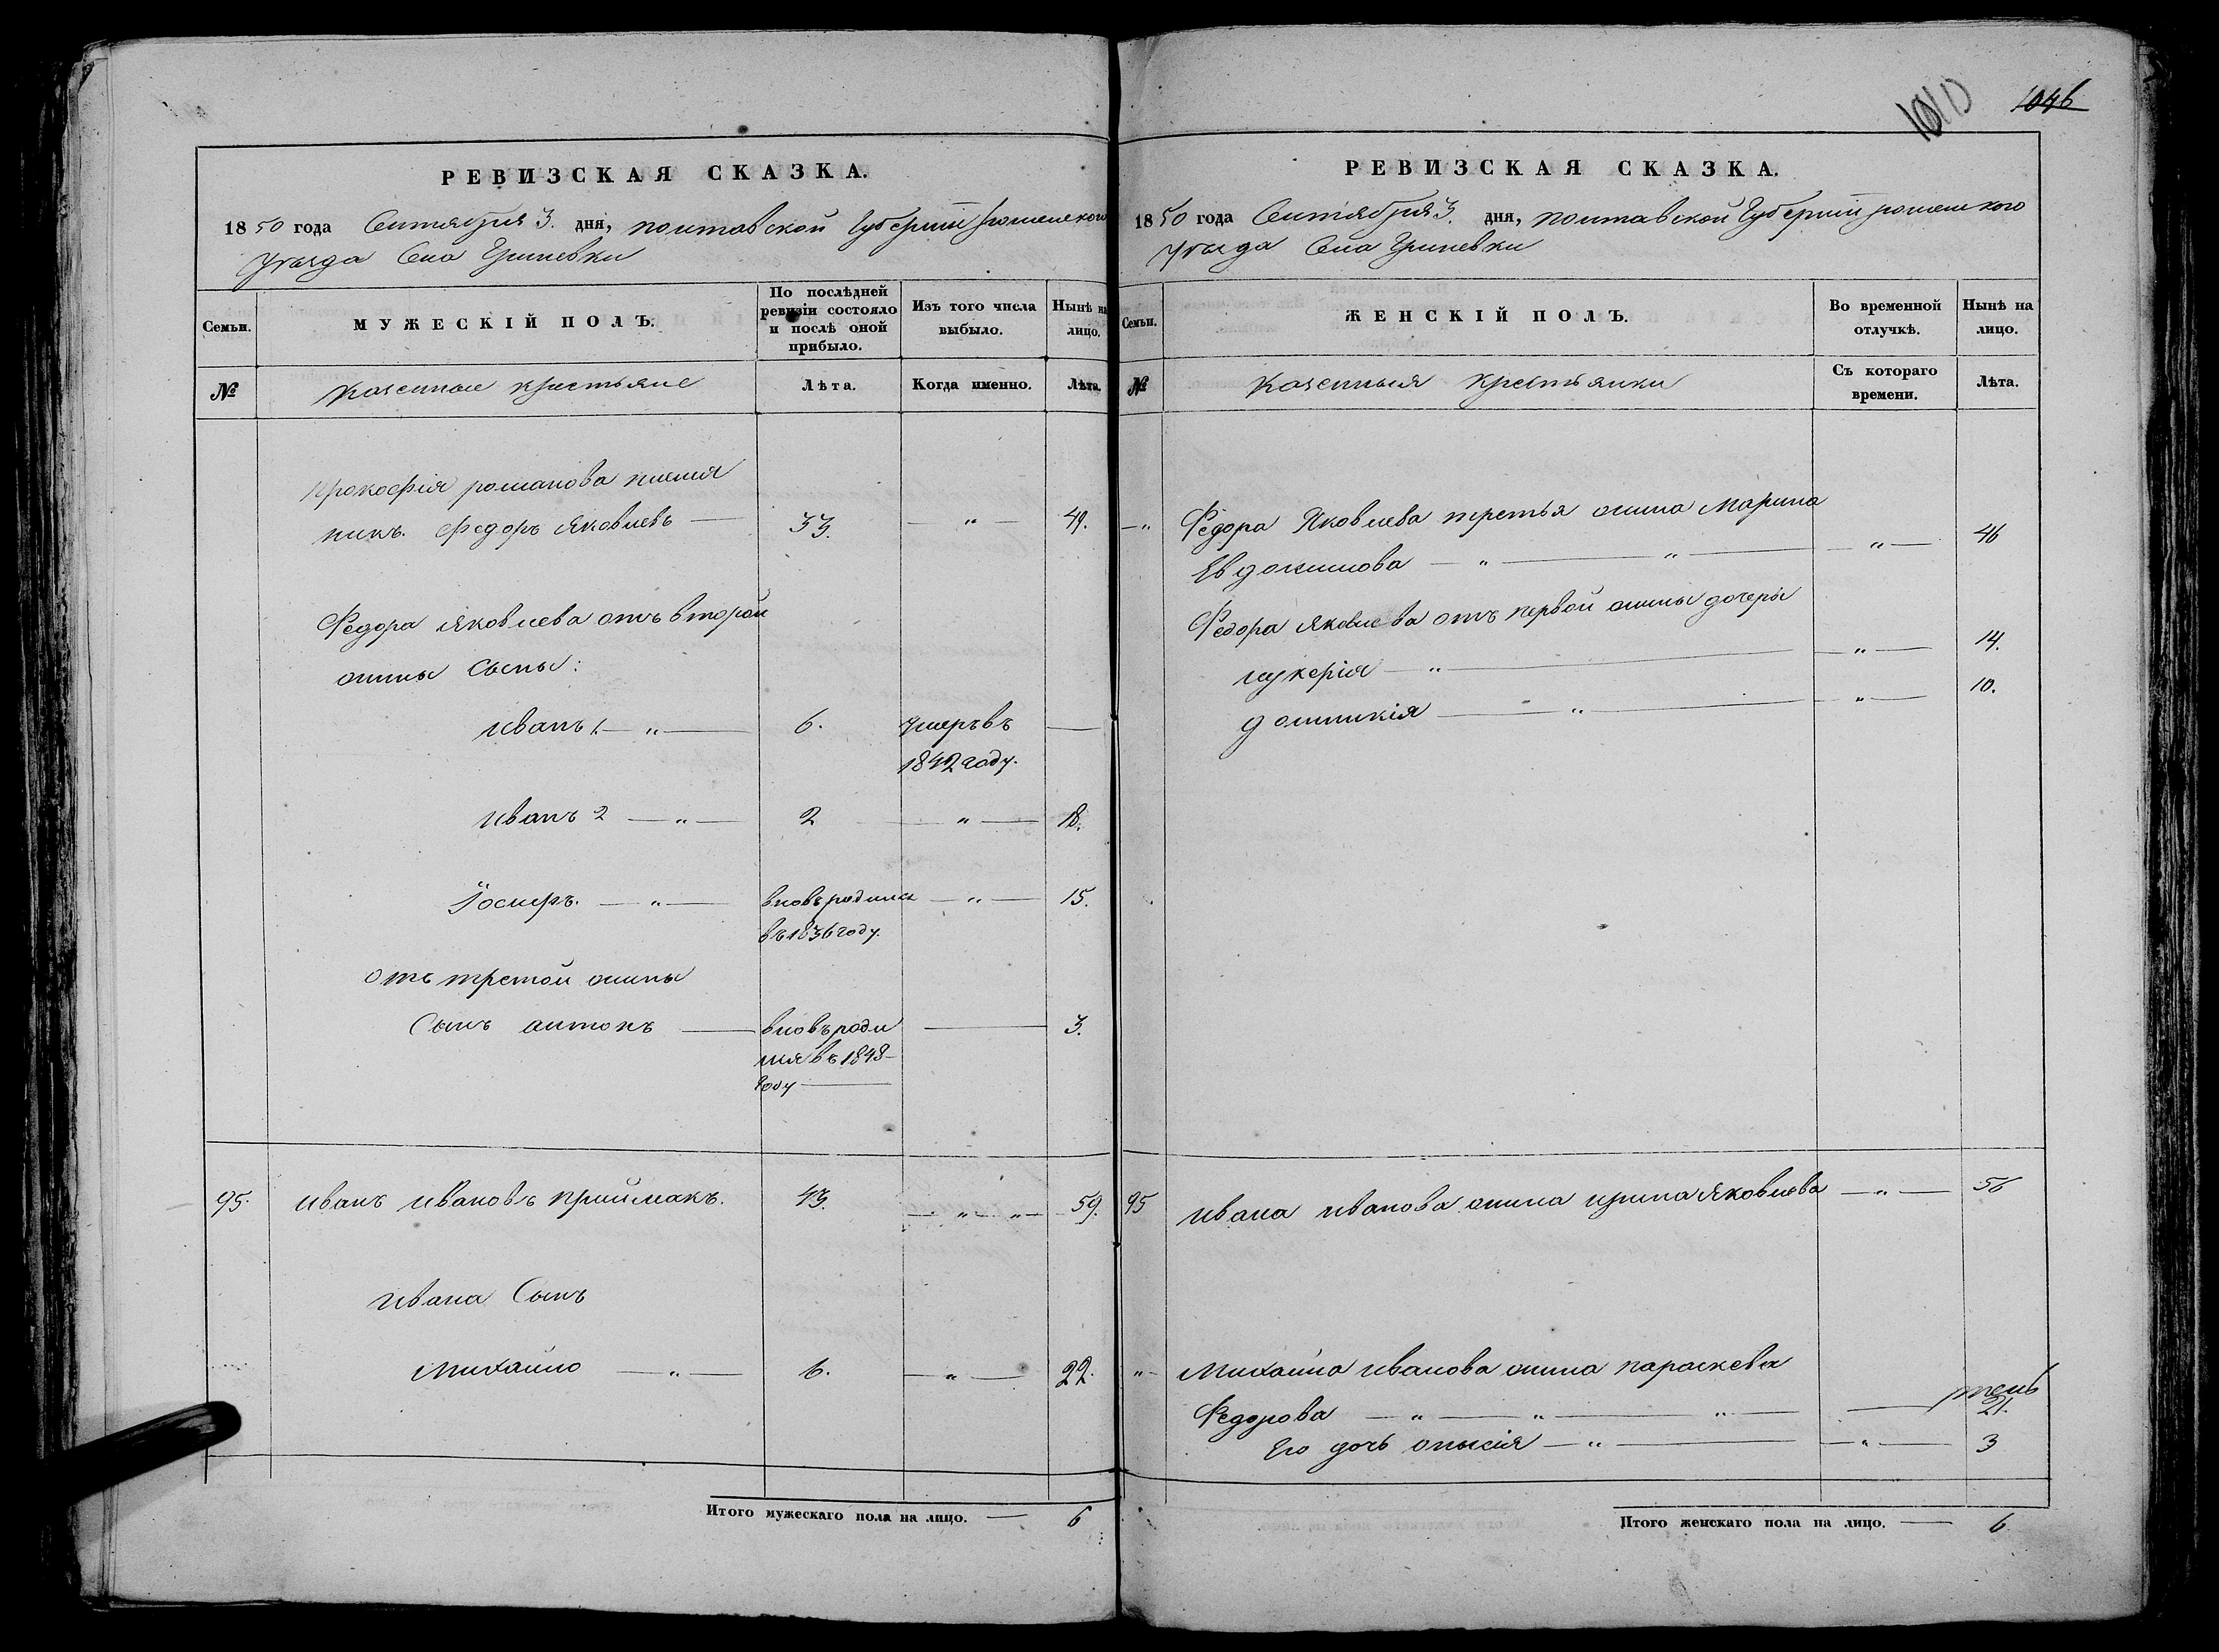 РЕВИЗСКАЯ СКАЗКА.
1850 года Сентября 3. дня, полтавской Губерніи роменского
уѣзда Села Гриневки
Семьи.
МУЖЕСКІЙ ПОЛЪ.
По послѣдней
ревизіи состояло
и послѣ оной
прибыло.
Изъ того числа
выбыло.
Нынѣ на
лицо.
№
Казенные крестьяне
Лѣта.
Когда именно.
Лѣта.
Прокофія романова племя
никъ. Федоръ Яковлевъ — 33. — „ — 49.
Федора Яковлева отъ второй
жины Сыны:
иванъ 1. — „ — 6. умеръ въ —
1842 году.
иванъ 2 — „ — 2 — „ — 18.
Іосифъ. — „ — вновь родился — „ — 15.
въ 1836 году.
отъ третой жины
Сынъ антонъ — вновь роди — 3.
лся въ 1848
году —
95. иванъ ивановъ приймакъ. 43. — „ — „ — 59.
ивана Сынъ
михайло — „ — 6. — „ — 22.
Итого мужескаго пола на лицо. — 6
1046
РЕВИЗСКАЯ СКАЗКА.
1850 года Сентября 3. дня, полтавской Губерніи роменского
уѣзда Села Гриневки
Семьи.
ЖЕНСКІЙ ПОЛЪ.
Во временной
отлучкѣ.
Нынѣ на
лицо.
№
Казенныя крестьянки
Съ котораго
времени.
Лѣта.
— „ Федора Яковлева третья жина Марина
Евдокимова — „ — „ — — „ — 46
Федора Яковлева отъ первой жины дочеры
лукерія — „ — — „ — 14.
домникія — „ — — „ — 10.
95 ивана иванова жина ирина Яковлева — „ — 56
„ - Михайла иванова жина параскева
Федорова — „ — „ — „ — — 21.
Его дочь анысія — „ — — „ — 3
Итого женскаго пола на лицо. — 6